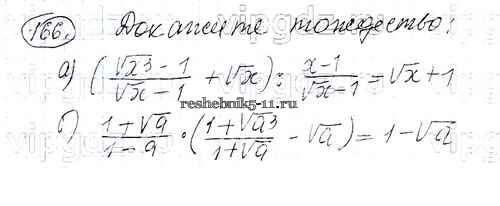 166. Докажите тождество:
а) (√x3 - 1 / √x - 1 + √x) : x-1 / √x-1 = √x + 1
reshebnik5-11.ru
б) 1+√a / 1-a · (1+√a3 / 1+√a - √a) = 1-√a